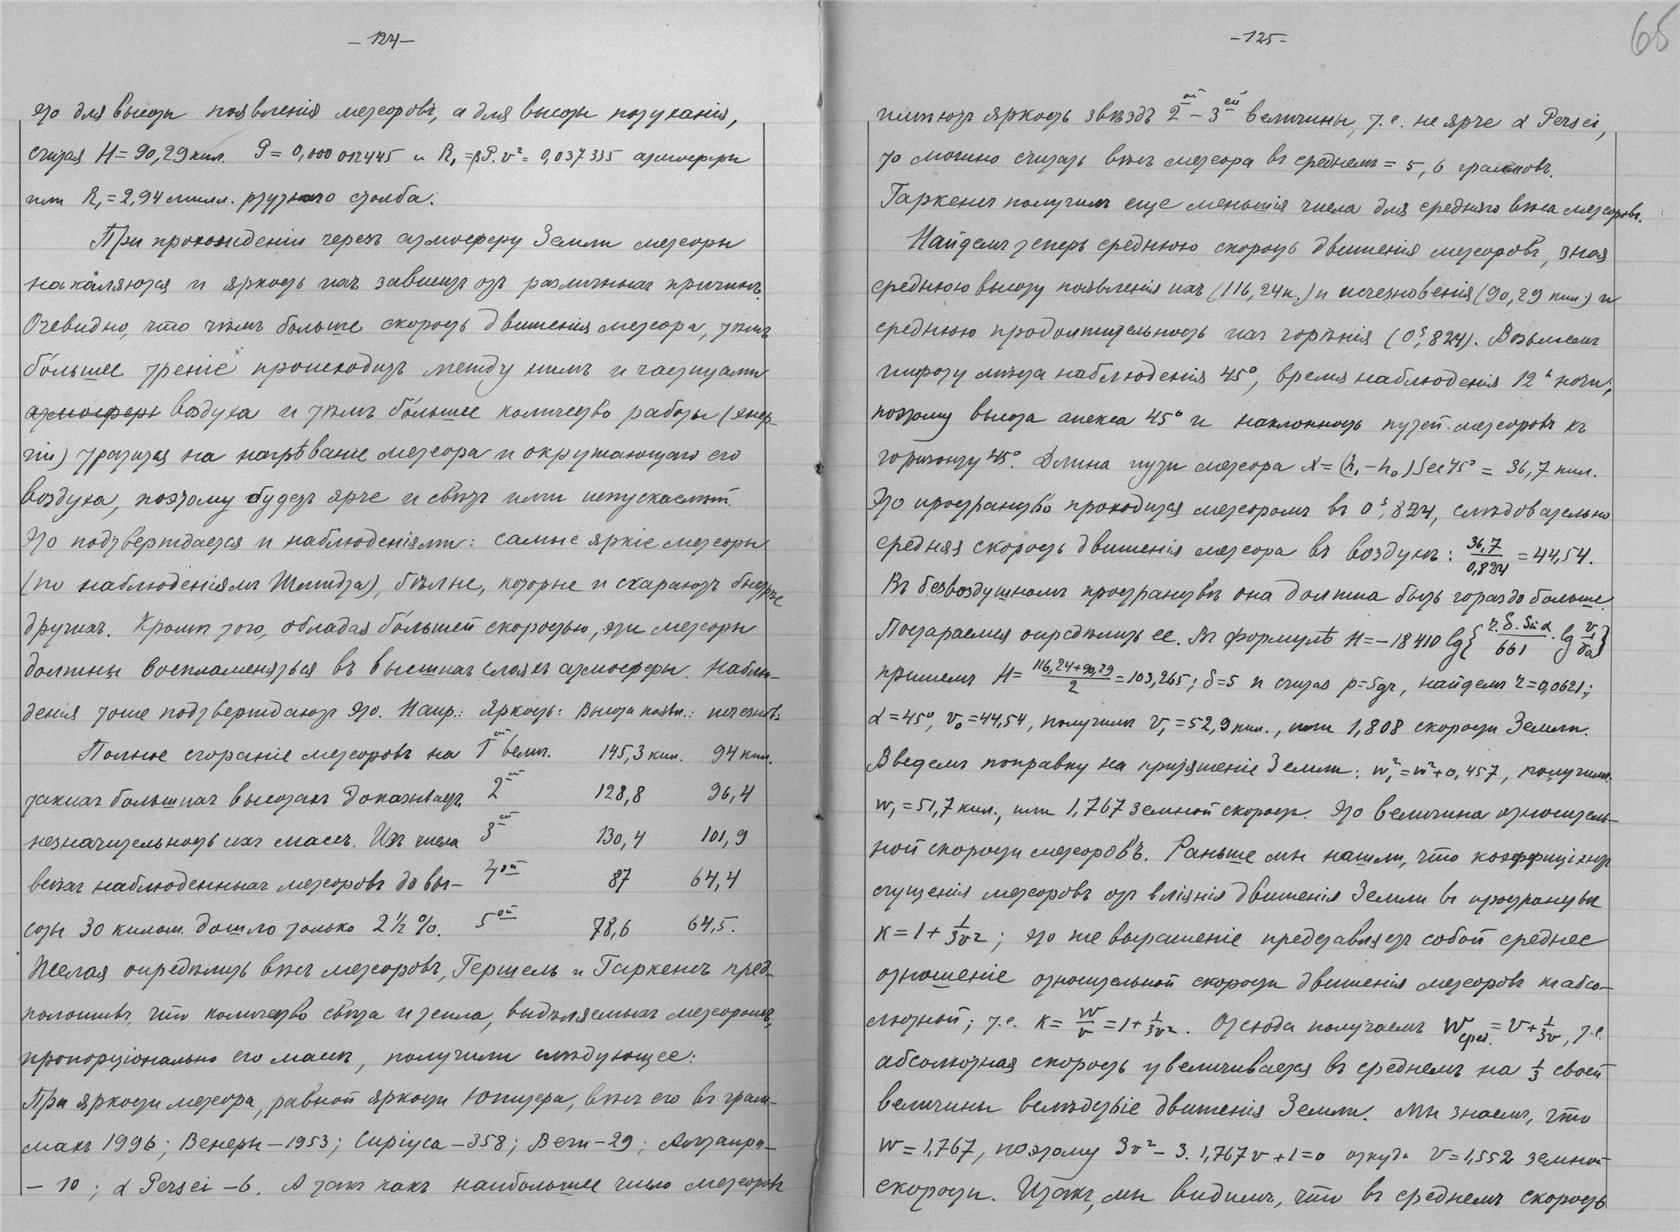 -124-
это для высоты появленія метеоровъ, а для высоты потуханія,
считая H=90,29 кил. P=0,000012445 и R₁=βP.v²=0,037335 атмосферы
или R₁=2,94 милл. ртутнаго столба.
При прохожденіи черезъ атмосферу Земли метеоры
накаляются и яркость ихъ зависитъ отъ различныхъ причинъ.
Очевидно, что чѣмъ больше скорость движенія метеора, тѣмъ
бо́льшее треніе происходитъ между нимъ и частицами
атмосферы воздуха и тѣмъ бо́льшее количество работы (энер-
гіи) тратится на нагрѣваніе метеора и окружающаго его
воздуха, поэтому будетъ ярче и свѣтъ ими испускаемый.
Это подтверждается и наблюденіями: самые яркіе метеоры
(по наблюденіямъ Шмидта), бѣлые, которые и сгараютъ быстрѣе
другихъ. Кромѣ того, обладая бо́льшей скоростью, эти метеоры
должны воспламеняться въ высшихъ слояхъ атмосферы. Наблю-
денія тоже подтверждаютъ это. Напр.: Яркость: Высота появл.: исчезновъ
Полное сгораніе метеоровъ на 1ой велич. 145,3 кил. 94 кил.
такихъ большихъ высотахъ доказываетъ 2ой 128,8 96,4
незначительность ихъ массъ. Изъ числа 3ей 130,4 101,9
всѣхъ наблюденныхъ метеоровъ до вы- 4ой 87 64,4
соты 30 килом. дошло только 2½%. 5ой 78,6 64,5.
Желая опредѣлить вѣсъ метеоровъ, Гершель и Гаркенсъ пред-
положивъ, что количество свѣта и тепла, выдѣляемыхъ метеоромъ,
пропорціонально его массѣ, получили слѣдующее:
При яркости метеора, равной яркости Юпитера, вѣсъ его въ грам-
махъ 1996; Венеры-1953; Сиріуса-358; Веги-29; Альтаира-
-10; α Persei-6. А такъ какъ наибольшее число метеоровъ
-125-
65
имѣютъ яркость звѣздъ 2ой-3ей величины, т.е. не ярче α Persei,
то можно считать вѣсъ метеора въ среднемъ=5,6 граммовъ.
Гаркенсъ получилъ еще меньшія числа для средняго вѣса метеоровъ.
Найдемъ теперь среднюю скорость движенія метеоровъ, зная
среднюю высоту появленія ихъ (116,24 к.) и исчезновенія (90,29 кил.) и
среднюю продолжительность ихъ горѣнія (0ˢ,824). Возьмемъ
широту мѣста наблюденія 45°, время наблюденія 12ʰ ночи;
поэтому высота апекса 45° и наклонность путей метеоровъ къ
горизонту 45°. Длина пути метеора X=(h₁-h₀)Sec45°=36,7 кил.
Это пространство проходится метеоромъ въ 0ˢ,824, слѣдовательно
средняя скорость движенія метеора въ воздухѣ: 36,7/0,824=44,54.
Въ безвоздушномъ пространствѣ она должна быть гораздо больше.
Постараемся опредѣлить ее. Въ формулѣ H=-18410 lg{r.δ.Sin α/661 . lg v₁/v₀}
примемъ H=116,24+90,29/2=103,265; δ=5 и считая p=5gr, найдемъ r=0,0621;
α=45°, v₀=44,54, получимъ v₁=52,9 кил., или 1,808 скорости Земли.
Введемъ поправку на притяженіе Земли: w₁²=w²+0,457, получимъ
w₁=51,7 кил., или 1,767 земной скорости. Это величина относитель-
ной скорости метеоровъ. Раньше мы нашли, что коэффиціентъ
сгущенія метеоровъ отъ вліянія движенія Земли въ пространствѣ
K=1+1/3v²; это же выраженіе представляетъ собой среднее
отношеніе относительной скорости движенія метеоровъ къ абсо-
лютной; т.е. K=w/v=1+1/3v². Отсюда получаемъ Wсред.=v+1/3v, т.е.
абсолютная скорость увеличивается въ среднемъ на 1/3 своей
величины вслѣдствіе движенія Земли. Мы знаемъ, что
w=1,767, поэтому 3v²-3.1,767v+1=0 откуда v=1,552 земной
скорости. Итакъ, мы видимъ, что въ среднемъ скорость